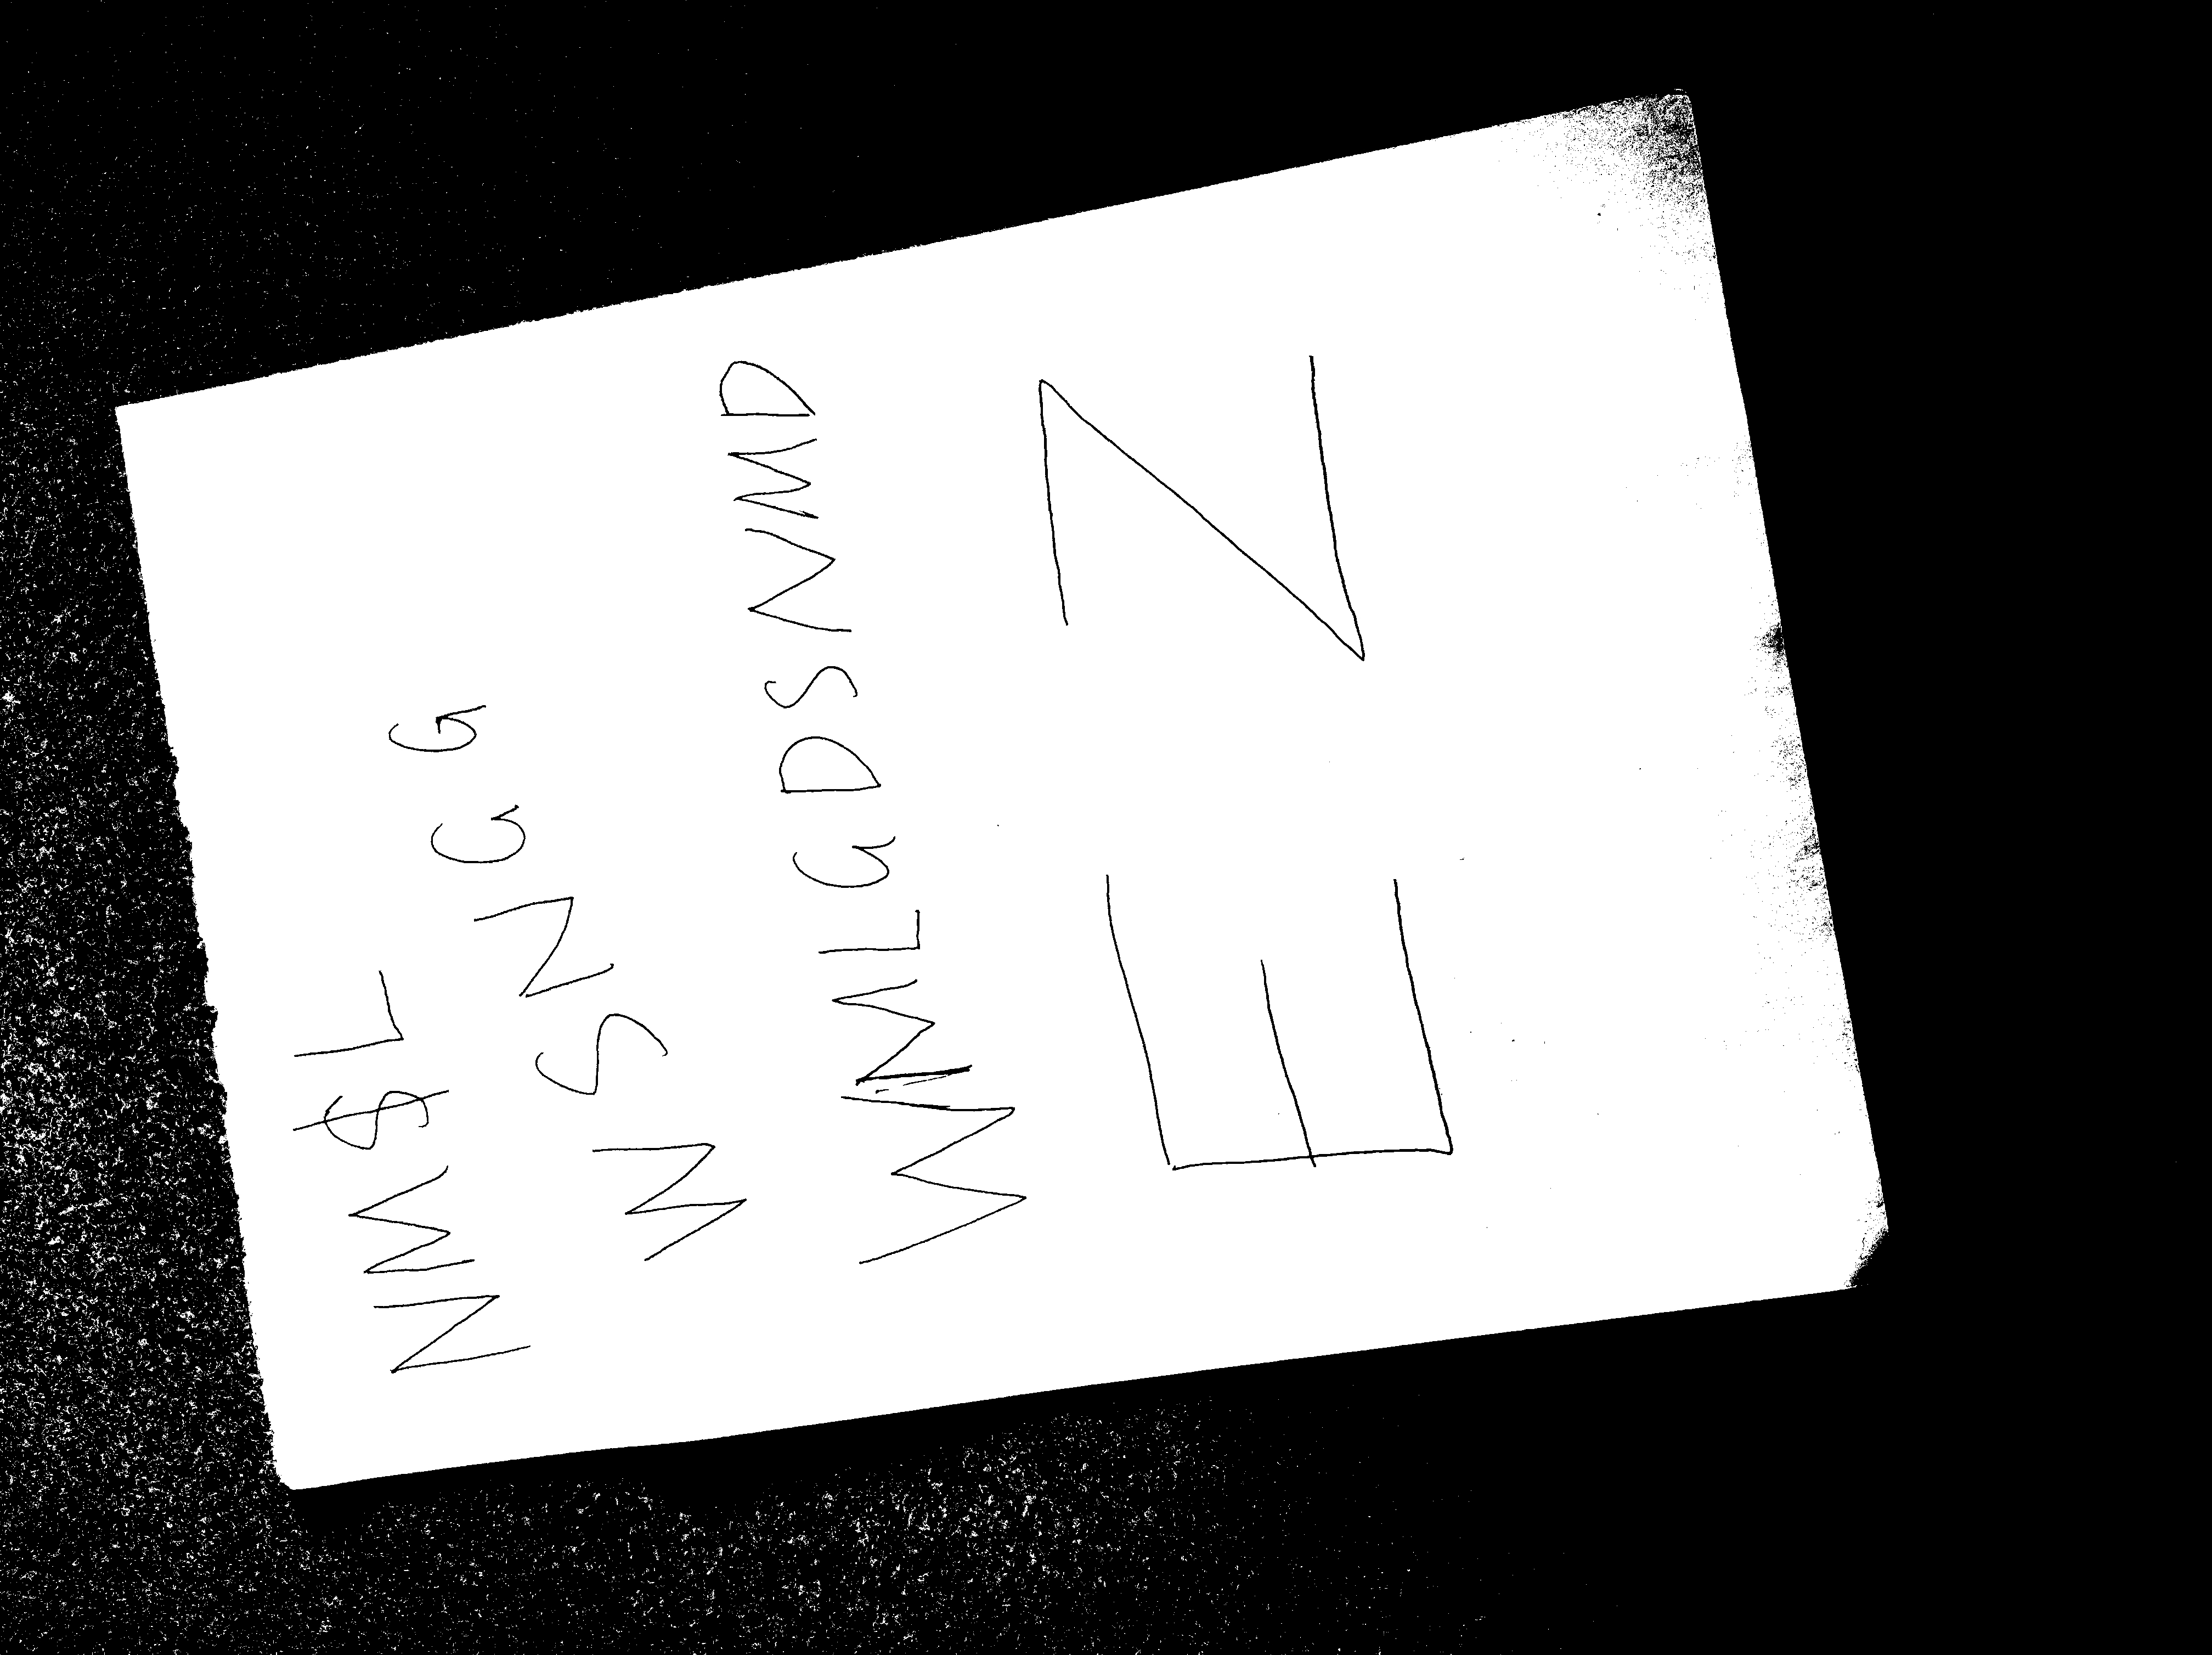 NM$L
WSNGG
WMLGDSNMD
E Z